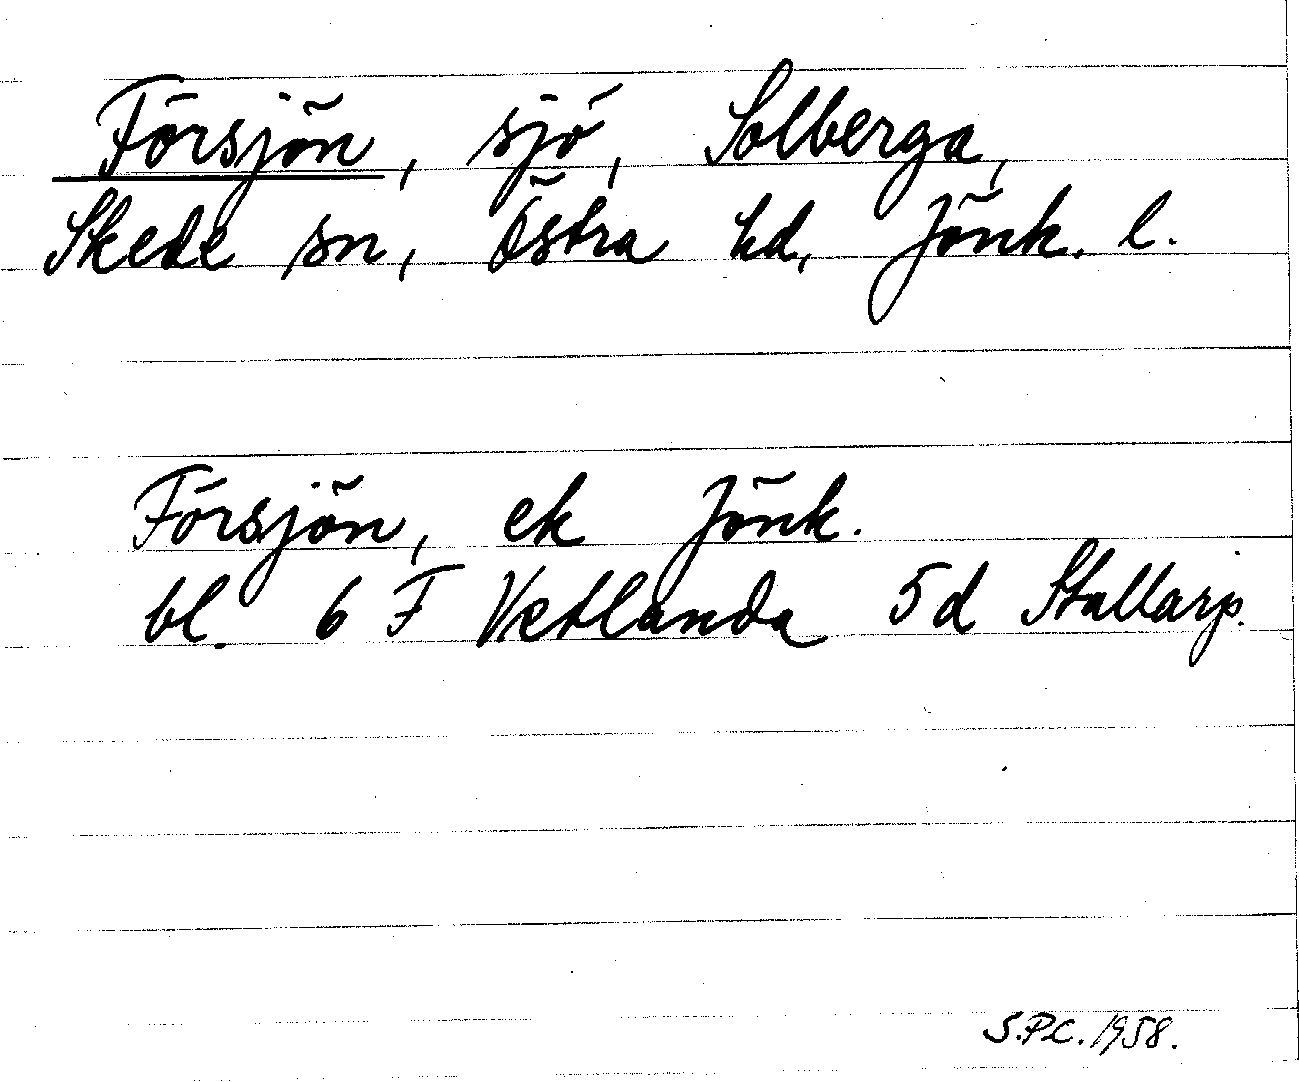 Försjön, sjö, Solberga,
Skede sn, Östra hd, Jönk. l.
Försjön, ek Jönk.
bl. 6 F Vetlanda 5d Stallarp.
S.P.C. 1958.